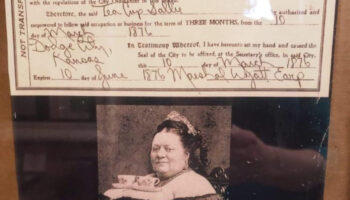 with the regulations of the City
Therefore, the said Tea Cup Sally authorized and
empowered to follow said occupation or business for the term of THREE MONTHS, from the 10
day of March 1876
Dodge City, In Testimony Whereof, I have hereunto set my hand and caused the
Kansas Seal of the City to be affixed, at the Secretary's office, in said City,
this 10 day of March 1876
Expires 10 June 1876 Marshal Wyatt Earp
NOT TRANSF